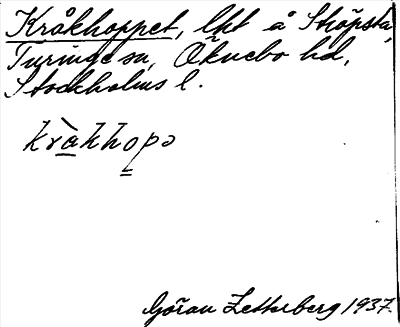 Kråkhoppet, lht å Sköpsta,
Turinge sn, Öknebo hd,
Stockholms l.
kràkhopə
Göran Zetterberg 1937.